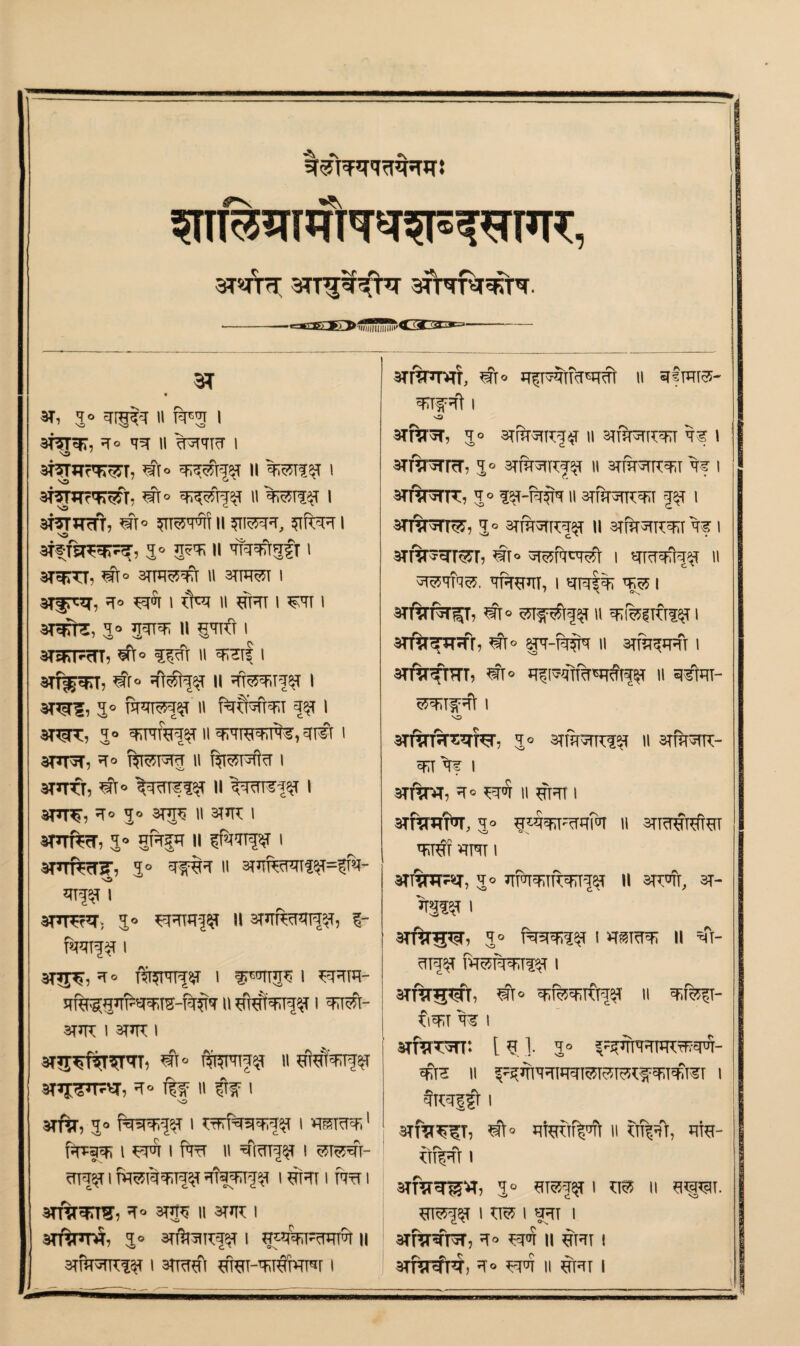 शालिग्रामौषधशब्दसागर,
अर्थात् आयुर्वेदीय औषधिकोष.
अ
अ, पु० वासुदेव ॥ विष्णु ।
अंशुक, न० पत्र ॥ तेजपात ।
अंशुमत्फला, स्त्री० कदलीवृक्ष ॥ केलावृक्ष ।
अंशुमत्फली, स्त्री० कदलीवृक्ष ॥ केलावृक्ष ।
अंशुमती, स्त्री० शालपर्णी ॥ शालवन, शरिवन ।
अंह्रिस्कन्द, पु० गुल्फ ॥
अकरा, स्त्री० आमलकी ॥ आमला ।
अकुप्य, न० स्वर्ण । रौप्य ॥ सोना । रूपा ।
अकोट, पु० गुवाक ॥ सुपारी ।
अक्रान्ता, स्त्री० बृहती ॥ कटाई ।
अक्लिका, स्त्री० नीलीवृक्ष ॥ नीलकावृक्ष ।
अक्षोड, पु० पिप्पलवृक्ष ॥
अगज, न० शिलाजतु ॥ शिलाजीत ।
अगरी, स्त्री० देवताडवृक्ष ॥ देवताडवृक्ष ।
अगरु, न० पु० अगुरु ॥ अगर ।
अगस्ति, पु० मुनिद्रुम ॥ हथियावृक्ष ।
अगस्तिद्रु, पु० वङ्गसेन ॥ अगस्तियावृक्ष=हथि-
यावृक्ष ।
अगस्त्य, पु० स्वनामवृक्ष ॥ अगस्तियावृक्ष, ह-
थियावृक्ष ।
अगुरु, न० शिंशपावृक्ष । कृष्णागुरु । स्वनाम-
ख्यातसुगन्धिकाष्ठ-विशेष ॥ सीसोंकावृक्ष । काली-
अगर । अगर ।
अगुरुशिंशपा, स्त्री० शिंशपावृक्ष ॥ सीसोंकावृक्ष
अगूढगन्ध, न० हिङ्गु ॥ हींङ्ग ।
अग्नि, पु० चित्रकवृक्ष । रक्तचित्रकवृक्ष । भल्लातक ।
निम्बुक । स्वर्ण । पित्त ॥ चीतावृक्ष । लालची-
तावृक्ष । भिलावेकावृक्ष नींबूकावृक्ष । सोना । पित्त ।
अग्निकाष्ठ, न० अगुरु ॥ अगर ।
अग्निगर्भ, पु० अग्निजारवृक्ष । सूर्य्यकान्तमणि ॥
अग्निजारवृक्ष । आतसी सीसा-कासीमाषा ।
अग्निगर्भा, स्त्री० महाज्योतिष्मती ॥ बडीमाल-
काङ्गुनी ।
अग्निज, पु० अग्निजारवृक्ष ॥ अग्निजारका पेड ।
अग्निजात, पु० अग्निजारवृक्ष ॥ अग्निजारका पेड ।
अग्निजार, पु० वृक्ष-विशेष ॥ अग्निजारका वृक्ष ।
अग्निजाल, पु० अग्निजारवृक्ष ॥ अग्निजारका पेड ।
अग्निज्वाला, स्त्री० जलपिप्पली । धातकीवृक्ष ॥
जलपीपल. पनिसगा, । धायके फूल ।
अग्निजिह्वा, स्त्री० लाङ्गलीवृक्ष ॥ कलिहारीवृक्ष ।
अग्निदमनी, स्त्री० क्षुप-विशेष ॥ अग्निदमनी ।
अग्निदीप्ता, स्त्री० महाज्योतिष्मतीवृक्ष ॥ बडीमा-
लकाङ्गुनी ।
अग्निनिर्य्यास, पु० अग्निजारवृक्ष ॥ अग्निजार-
का पेड ।
अग्निभ, न० स्वर्ण ॥ सोना ।
अग्निमणि, पु० सूर्य्यकान्तमणि ॥ आतसीसीसा
अग्निमन्थ, पु० गणिकारिकावृक्ष ॥ अरणी, अ-
गेथुवृक्ष ।
अग्निमुख, पु० चित्रकवृक्ष । भल्लातक ॥ ची-
तावृक्ष भिलावेकावृक्ष ।
अग्निमुखी, स्त्री० कलिकारीवृक्ष ॥ कलिहा-
रीका पेड ।
अग्निरुहा, स्त्री० मांसरोहिणी ॥ रोहिनी, मांस-
रोहिनी ।
अग्निवल्लभ, पु० सालवृक्ष । राल ॥
सालवृक्ष । राल । धूना ।
अग्निबीज, न० स्वर्ण ॥ सोना ।
अग्निवीर्य, न० स्वर्ण ॥ सोना ।